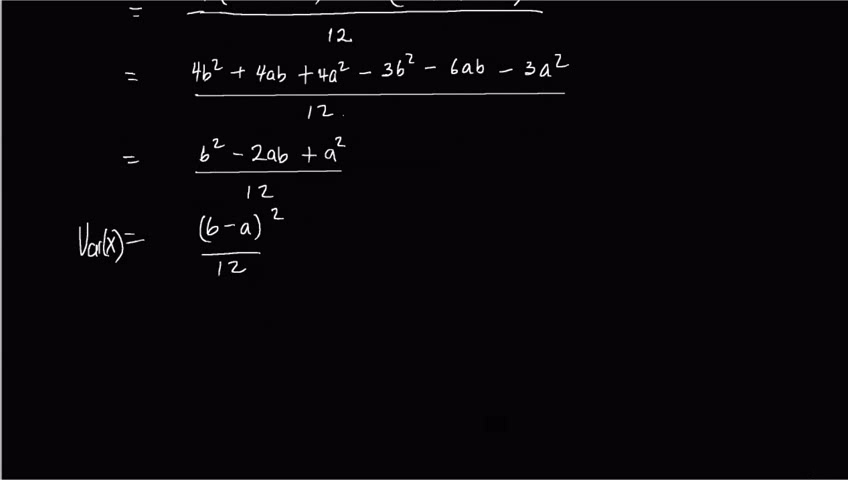 = 12
= 4b² + 4ab + 4a² - 3b² - 6ab - 3a² / 12
= b² - 2ab + a² / 12
Var(x) = (b-a)² / 12